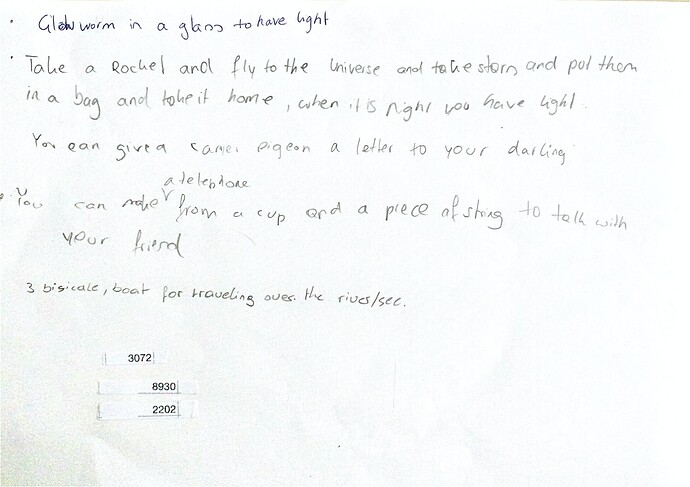 Glow worm in a glass to have light
Take a Rocket and fly to the Universe and take stars and put them
in a bag and take it home, when it is night you have light.
You can give a carrier pigeon a letter to your darling
a telephone
You can make from a cup and a piece of string to talk with
your friend
3 bisicale, boat for traveling over the rives/see.
3072
8930
2202